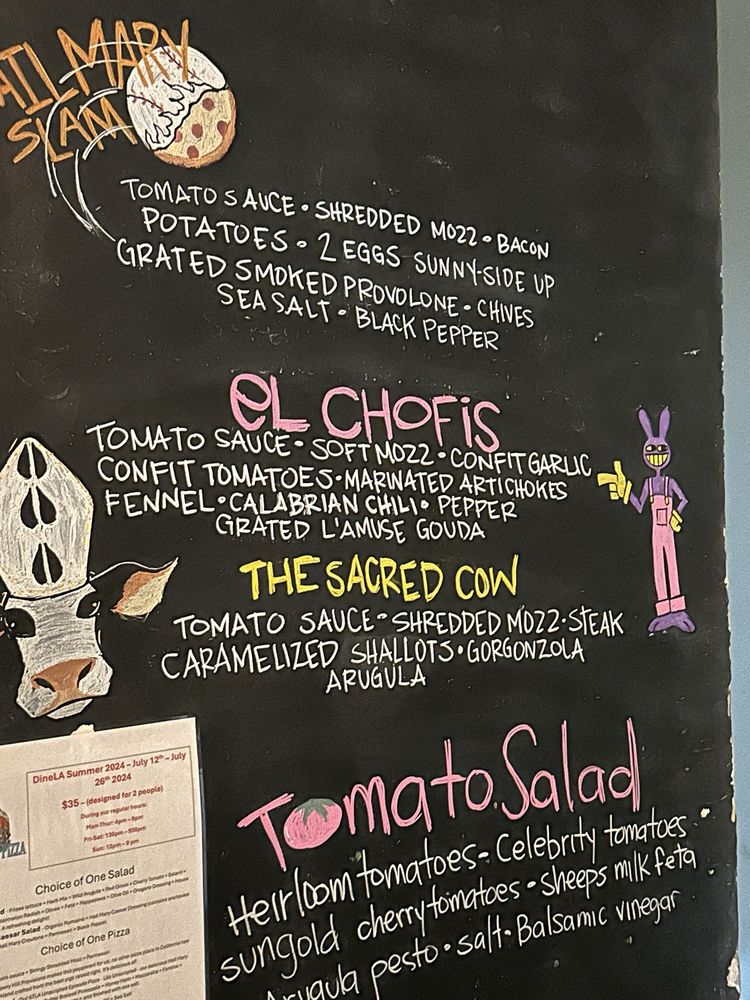 SLAM
TOMATO SAUCE • SHREDDED MOZZ • BACON
POTATOES • 2 EGGS SUNNY-SIDE UP
GRATED SMOKED PROVOLONE • CHIVES
SEA SALT • BLACK PEPPER
eL CHOFiS
TOMATO SAUCE • SOFT MOZZ • CONFIT GARLIC
CONFIT TOMATOES • MARINATED ARTICHOKES
FENNEL • CALABRIAN CHILI • PEPPER
GRATED L'AMUSE GOUDA
THE SACRED COW
TOMATO SAUCE • SHREDDED MOZZ • STEAK
CARAMELIZED SHALLOTS • GORGONZOLA
ARUGULA
Tomato Salad
Heirloom tomatoes - Celebrity tomatoes
sungold cherry tomatoes • sheeps milk feta
Arugula pesto • salt • Balsamic vinegar
DineLA Summer 2024 – July 12th – July
26th 2024
$35 – (designed for 2 people)
During our regular hours:
Mon-Thur: 4pm – 9pm
Fri-Sat: 130pm – 930pm
Sun: 12pm – 9 pm
PIZZA
Choice of One Salad
Choice of One Pizza